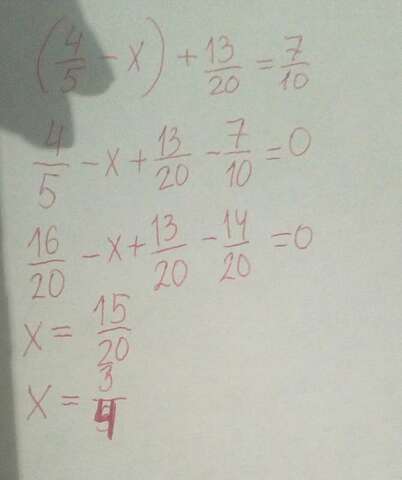 (4/5 - x) + 13/20 = 7/10
4/5 - x + 13/20 - 7/10 = 0
16/20 - x + 13/20 - 14/20 = 0
x = 15/20
x = 3/4